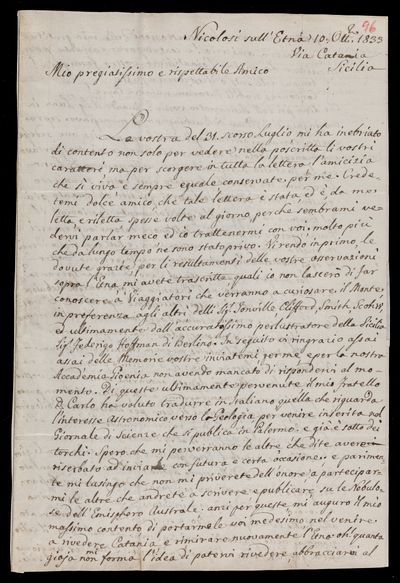 96
Nicolosi sull'Etna 10. Ott.e 1833
Via Catania
Mio pregiatissimo e rispettabile Amico Sicilia
La vostra del 31. scorso Luglio mi ha inebriato
di contento non solo per vedere nella poscritta li vostri
caratteri ma per scorgere in tutta la lettera l'amicizia
che si viva e sempre eguale conservate per me. Crede-
temi dolce amico che tale lettera è stata, ed è da me
letta e riletta spesse volte al giorno, perche sembrami ve-
dervi parlar meco ed io trattenermi con voi: molto più
che da lungo tempo ne sono stato privo. Vi rendo in primo le
dovute grazie per li resultamenti delle vostre osservazioni
sopra l'Etna mi avete trascritte quali io non lascerò di far
conoscere a Viaggiatori che verranno a curiosare il Monte
in preferenza agli altri delli Sig.i Clifford, Smith,
ed ultimamente dall'accuratissimo perlustratore della Sicilia
Sig. Federigo Hoffman di Berlino. In seguito vi ringrazio assai
assai delle Memorie vostre inviatemi per me e per la nostra
Accademia Gioenia non avendo mancato di rispondervi al mo-
mento. Di queste ultimamente pervenute il mio fratello
D. Carlo ha voluto tradurre in Italiano quella che riguarda
l'interesse Astronomico verso la Geologia per venire inserita nel
Giornale di Scienze che si publica in Palermo: e già è sotto dei
torchi. Spero che mi perverranno le altre che dite avere
riservato ad inviarle con futura e certa occasione: e parimen-
te mi lusingo che non mi priverete dell'onore a partecipar-
mi le altre che andrete a scrivere e publicare su le Nebulo-
se dell'Emisphero Australe. anzi per queste mi auguro il mio
massimo contento di portarmele voi medesimo nel venire
a rivedere Catania e rimirare nuovamente l'Etna. oh! quanta
gioja mi forma l'idea di potervi rivedere, abbracciarvi al